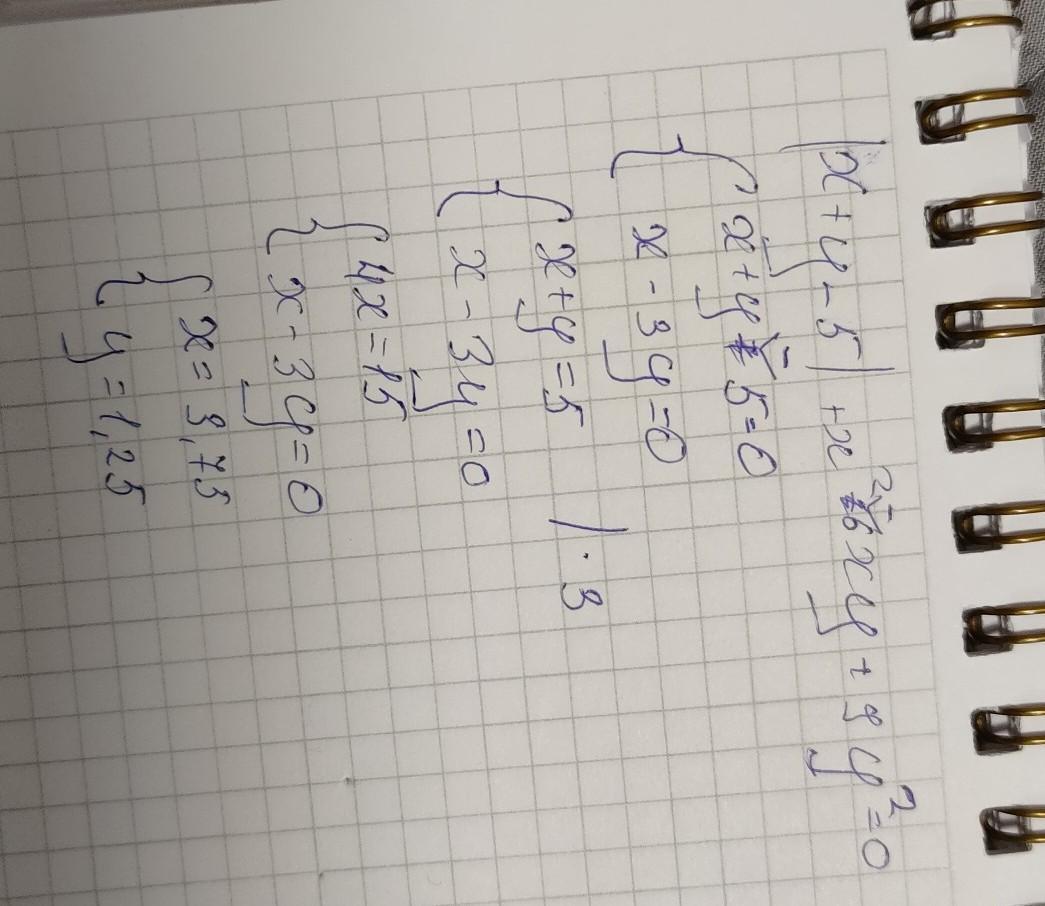 |x + y - 5| + x² - 6xy + 9y² = 0
{ x + y - 5 = 0
x - 3y = 0
{ x + y = 5 / · 3
x - 3y = 0
{ 4x = 15
x - 3y = 0
{ x = 3,75
y = 1,25